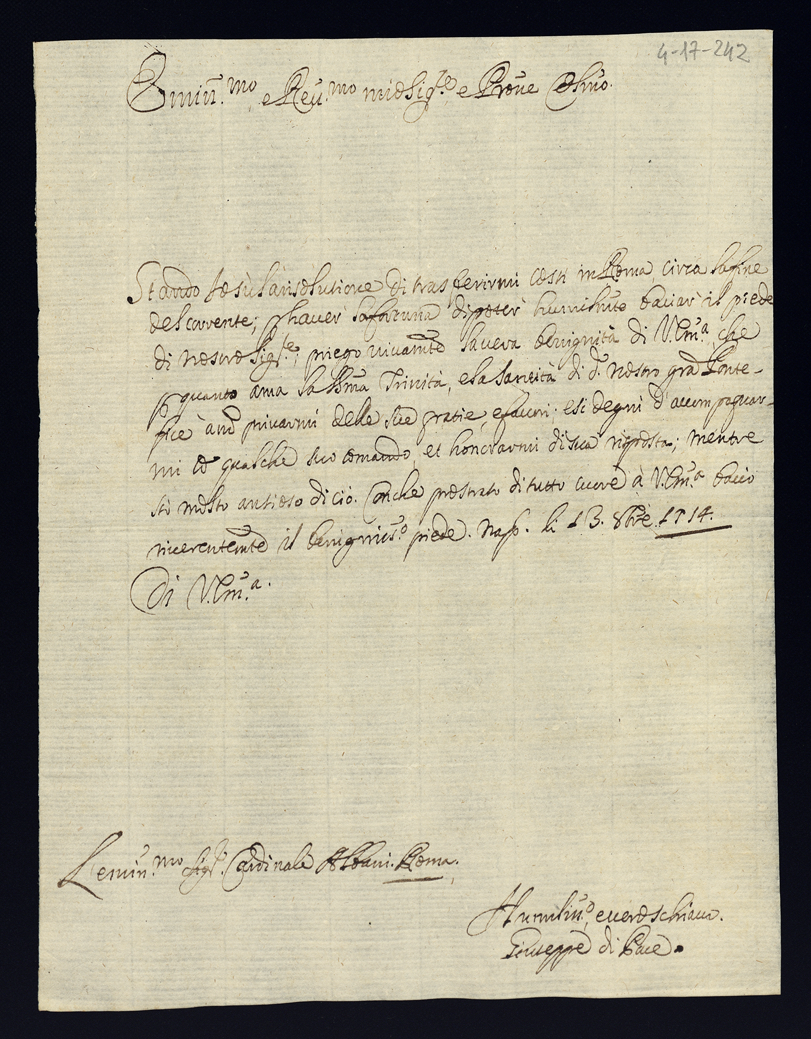 4-17-242
Emin̄.mo e Reu.mo mio Sig.re e Prone
Stando io sù la risolutione di trasferirmi costi in Roma circa la fine
del corrente; p hauer la fortuna di poter humilmte baciar il piede
di nostro Sig.re; priego viuamte la uera benignità di V. Em.a che
p quanto ama la SSma Trinità, e la santità di d.o nostro gra Ponte-
fice à nō priuarmi delle sue gratie, e fauori: e si degni d'accompagnar-
mi cō qualche suo comando, et honorarmi di sua risposta; mentre
stò molto antioso di ciò. Anche prostrato di tutto cuore à V. Em.a bacio
riuerentemte il benignis.o piede. Nap. li 13. 8bre 1714.
Di V. Em.a.
L'emin.mo Sig.r Cardinale Albani. Roma.
Humilis.o e uero schiauo.
Giuseppe di Pace.